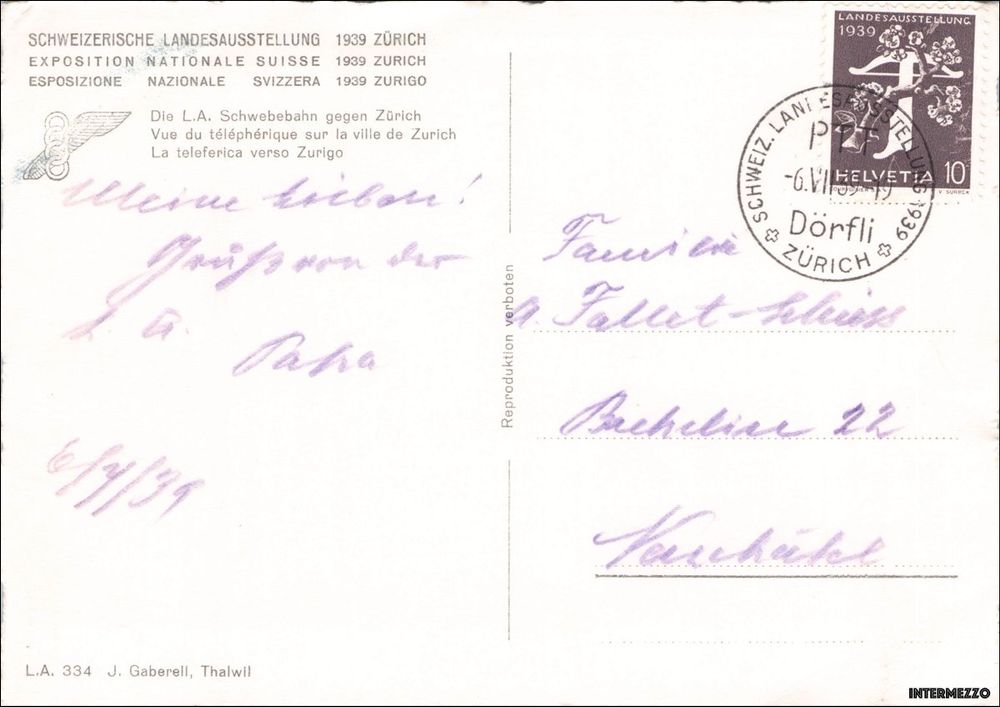 SCHWEIZERISCHE LANDESAUSSTELLUNG 1939 ZÜRICH
EXPOSITION NATIONALE SUISSE 1939 ZURICH
ESPOSIZIONE NAZIONALE SVIZZERA 1939 ZURIGO
Die L.A. Schwebebahn gegen Zürich
Vue du téléphérique sur la ville de Zurich
La teleferica verso Zurigo
Meine Lieben!
Grüße von der
L. A.
Papa
6/7/39
L.A. 334 J. Gaberell, Thalwil
Reproduktion verboten
LANDESAUSSTELLUNG
1939
HELVETIA 10
SCHWEIZ. LANDESAUSSTELLUNG 1939
PTT
-6.VII.39-19
Dörfli
ZÜRICH
Familie
A. Fallet-
Bachelin 22
Neuchâtel
INTERMEZZO